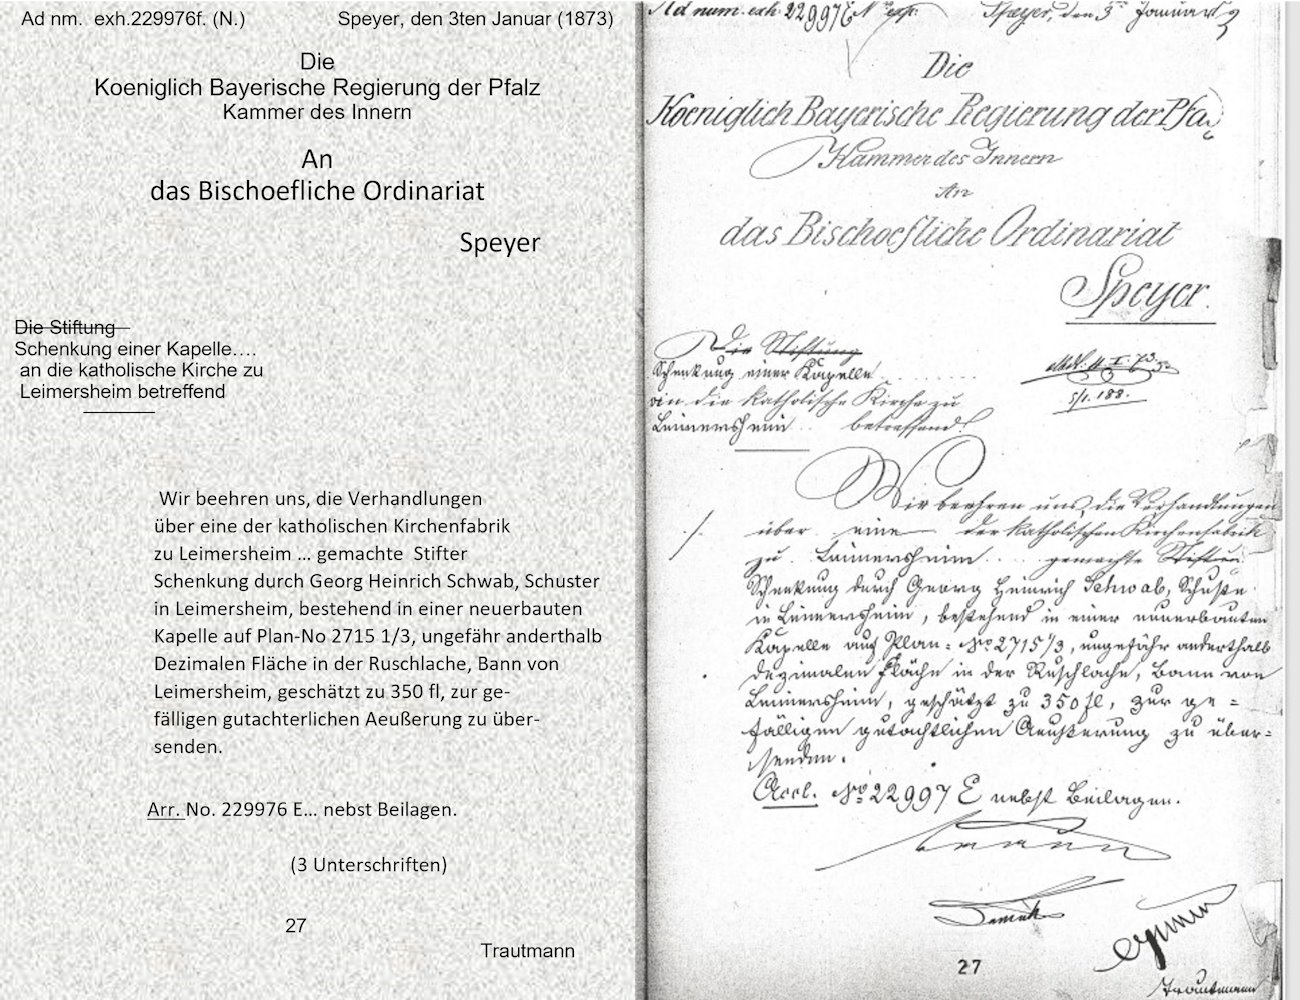 Ad nm. exh.229976f. (N.) Speyer, den 3ten Januar (1873)
Die
Koeniglich Bayerische Regierung der Pfalz
Kammer des Innern
An
das Bischoefliche Ordinariat
Speyer
Die Stiftung
Schenkung einer Kapelle….
an die katholische Kirche zu
Leimersheim betreffend
Wir beehren uns, die Verhandlungen
über eine der katholischen Kirchenfabrik
zu Leimersheim ... gemachte Stifter
Schenkung durch Georg Heinrich Schwab, Schuster
in Leimersheim, bestehend in einer neuerbauten
Kapelle auf Plan-No 2715 1/3, ungefähr anderthalb
Dezimalen Fläche in der Ruschlache, Bann von
Leimersheim, geschätzt zu 350 fl, zur ge-
fälligen gutachterlichen Aeußerung zu über-
senden.
Arr. No. 229976 E... nebst Beilagen.
(3 Unterschriften)
27
Trautmann
Ad num. exh. 22997 E Speyer, den 3 Januar
Die
Koeniglich Bayerische Regierung der Pfa
Kammer des Innern
An
das Bischoefliche Ordinariat
Speyer.
Die Stiftung
Schenkung einer Kapelle
an die katholische Kirche zu
Leimersheim betreffend
Wir beehren uns, die Verhandlungen
über eine der katholischen Kirchenfabrik
zu Leimersheim gemachte
Schenkung durch Georg Heinrich Schwab, Schuste
in Leimersheim, bestehend in einer neuerbauten
Kapelle auf Plan-No 2715 1/3, ungefähr anderthalb
Dezimalen Fläche in der Ruschlache, Bann von
Leimersheim, geschätzt zu 350 fl, zur ge=
fälligen gutachtlichen Aeußerung zu über=
senden.
No 22997 E nebst Beilagen.
27
Trautmann